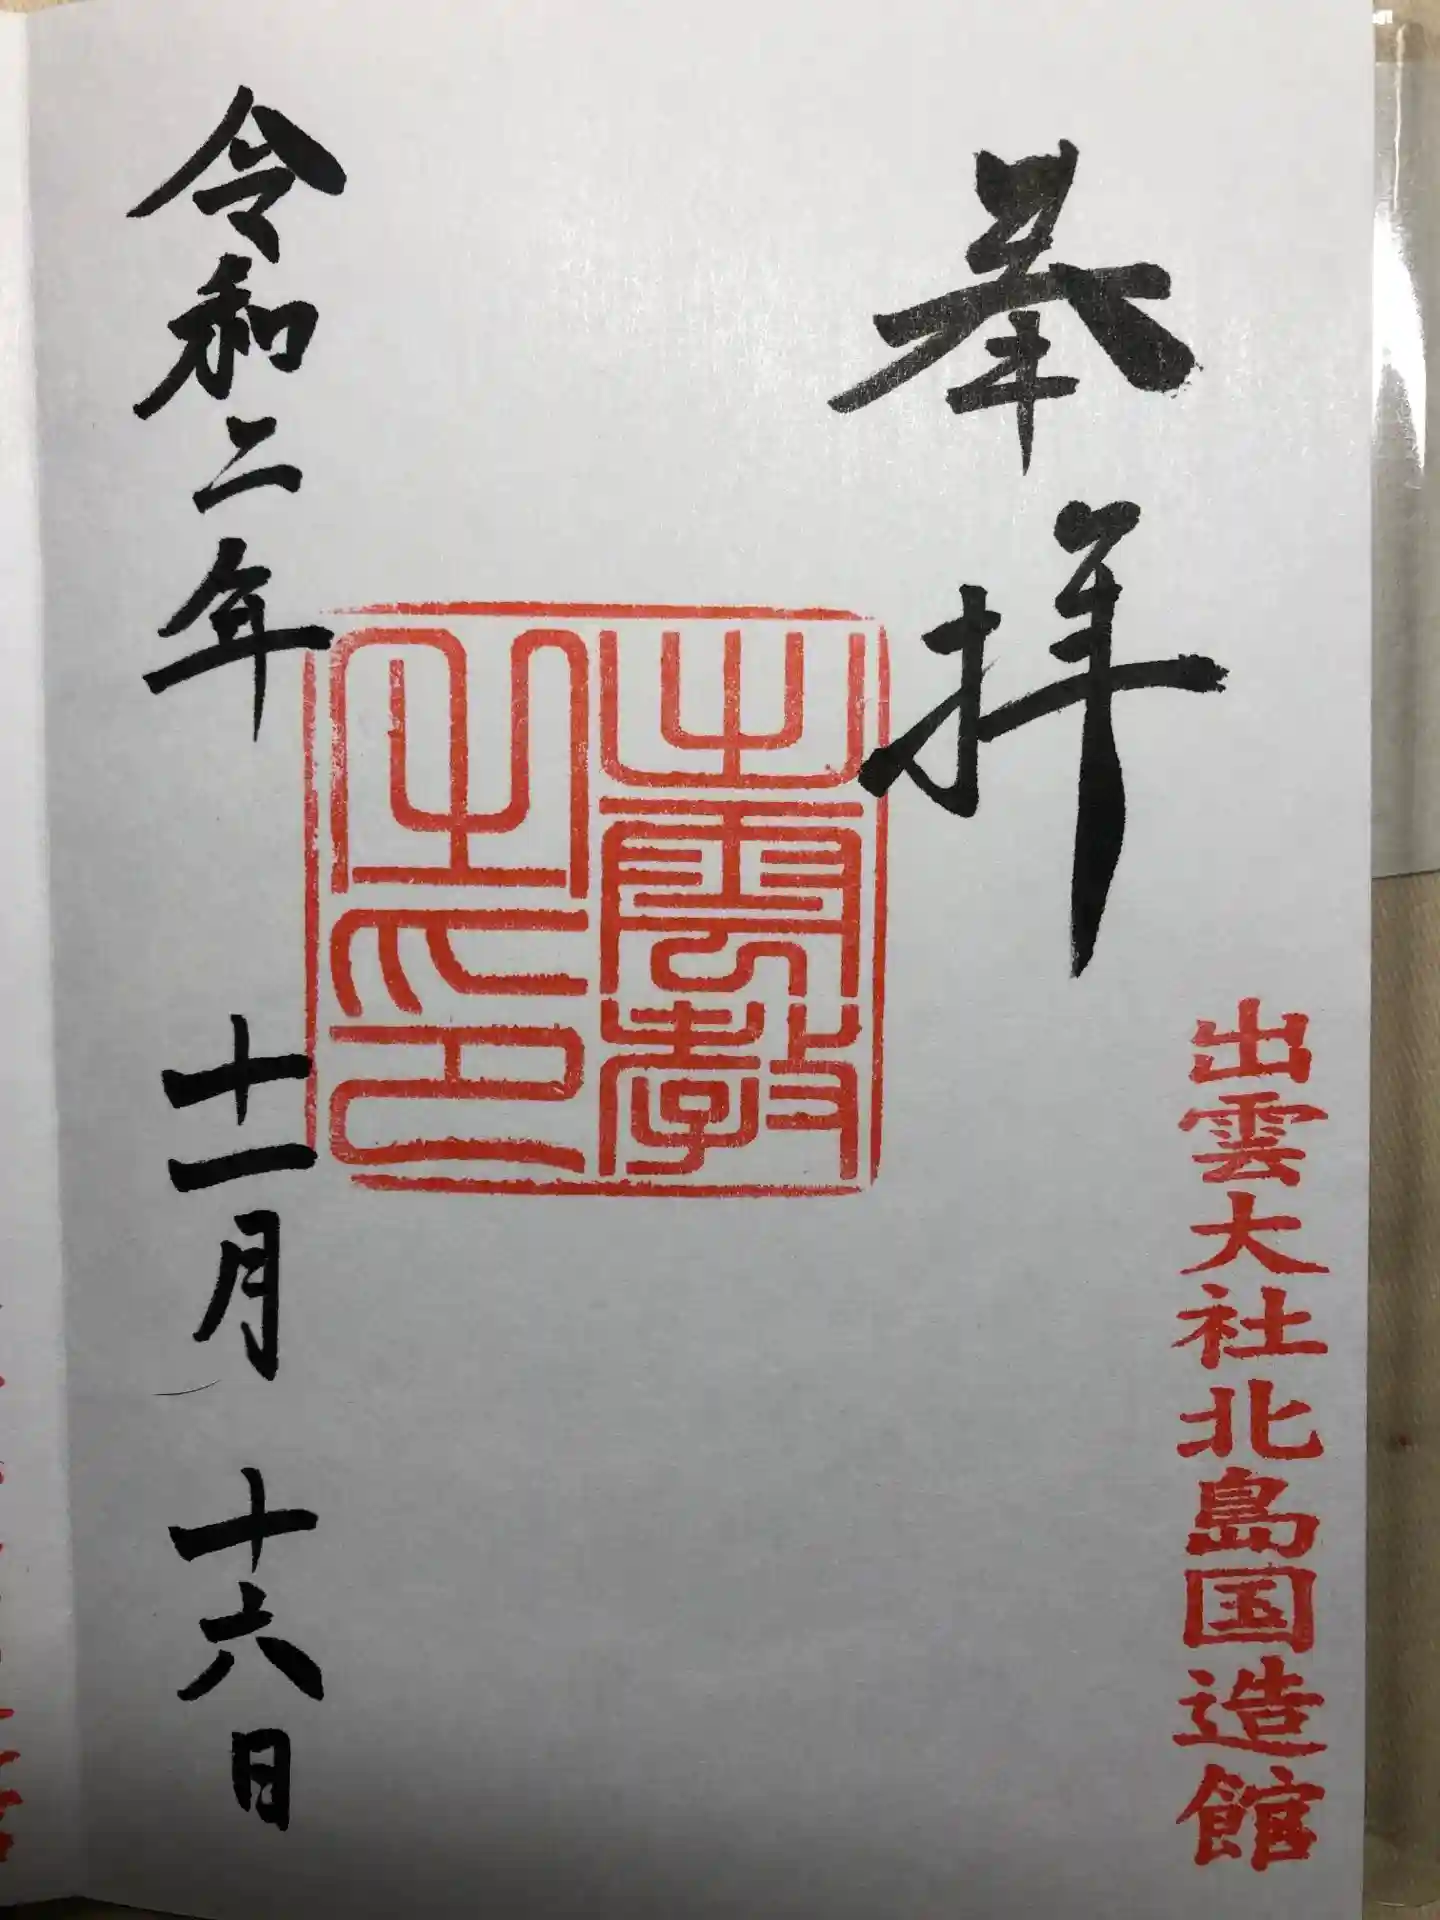 奉拝
出雲大社北島国造館
出雲教
之印
令和二年 十一月 十六日